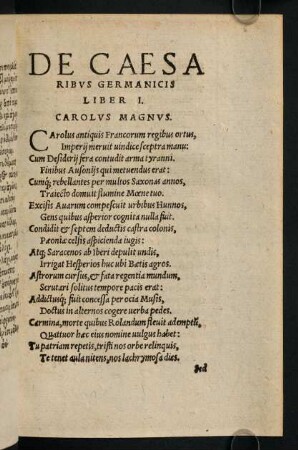 DE CAESA
RIBVS GERMANICIS
LIBER I.
CAROLVS MAGNVS.
CArolus antiquis Francorum regibus ortus,
Imperij meruit uindice sceptra manu:
Cum Desiderij fera contudit arma tyranni.
Finibus Ausonijs qui metuendus erat:
Cunq; rebellantes per multos Saxonas annos,
Traiecto domuit flumine Mœne tuo.
Excisis Auarum compescuit urbibus Hunnos,
Gens quibus asperior cognita nulla fuit.
Condidit & septem deductis castra colonis,
Pæoniæ celsis aspicienda iugis:
Atq; Saracenos ab Iberi depulit undis,
Irrigat Hesperios huc ubi Bætis agros.
Astrorum cursus, & fata regentia mundum,
Scrutari solitus tempore pacis erat:
Addictusq; fuit concessa per ocia Musis,
Doctus in alternos cogere uerba pedes.
Carmina, morte quibus Rolandum fleuit ademptũ,
Quattuor hæc eius nomine uulgus habet:
Tu patriam repetis, tristi nos orbe relinquis,
Te tenet aula nitens, nos lachrymosa dies.
Sed